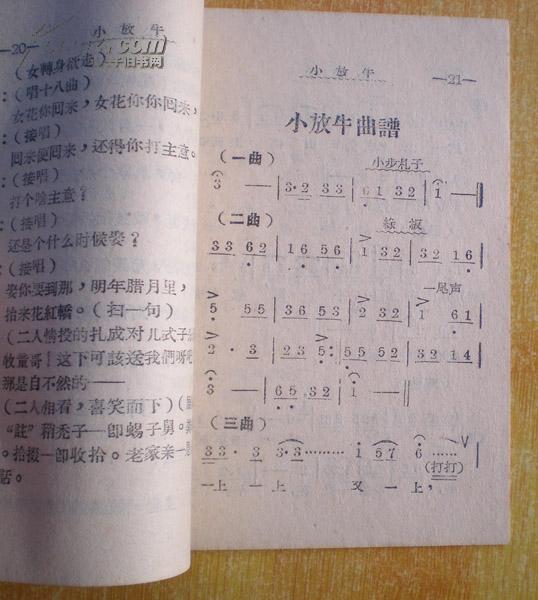 —20— 小放牛
(女轉身欲走)
:(唱十八曲)
女花你回来,女花你你回来,
:(接唱)
回来便回来,还得你打主意。
:(接唱)
打个啥主意?
:(接唱)
还是个什么时候娶?
:(接唱)
娶你要到那,明年腊月里,
抬来花紅轎。(扫一句)
(二人情投的扎成对儿式子
牧童哥!这下可該送我們呀
那是自不然的——
(二人相看,喜笑而下)
“註”稍禿子—卽蝎子舅。
。拾掇—卽收拾。老家亲—
話。
小放牛 —21—
小放牛曲譜
(一曲) 小步札子
3 — | 3·2 3 3 | 6 1 3 2 | 1 — ‖
(二曲)
3 3 6 2 | 1 6 5 6 | 1 3 2 | 3 2 1 6
一尾声
5 · 5 5 | 3 6 5 3 | 2 3 2 | 1 6 1
2 · 3 | 2 3 5 : | 5 5 5 2 | 3 2 1 4
3 — | 6 5 3 2 | 1 — ‖
(三曲)
3 3 · 3 | 3·3 ········· 1 5 7 6 ······
(打打)
一上 一上 又一上,